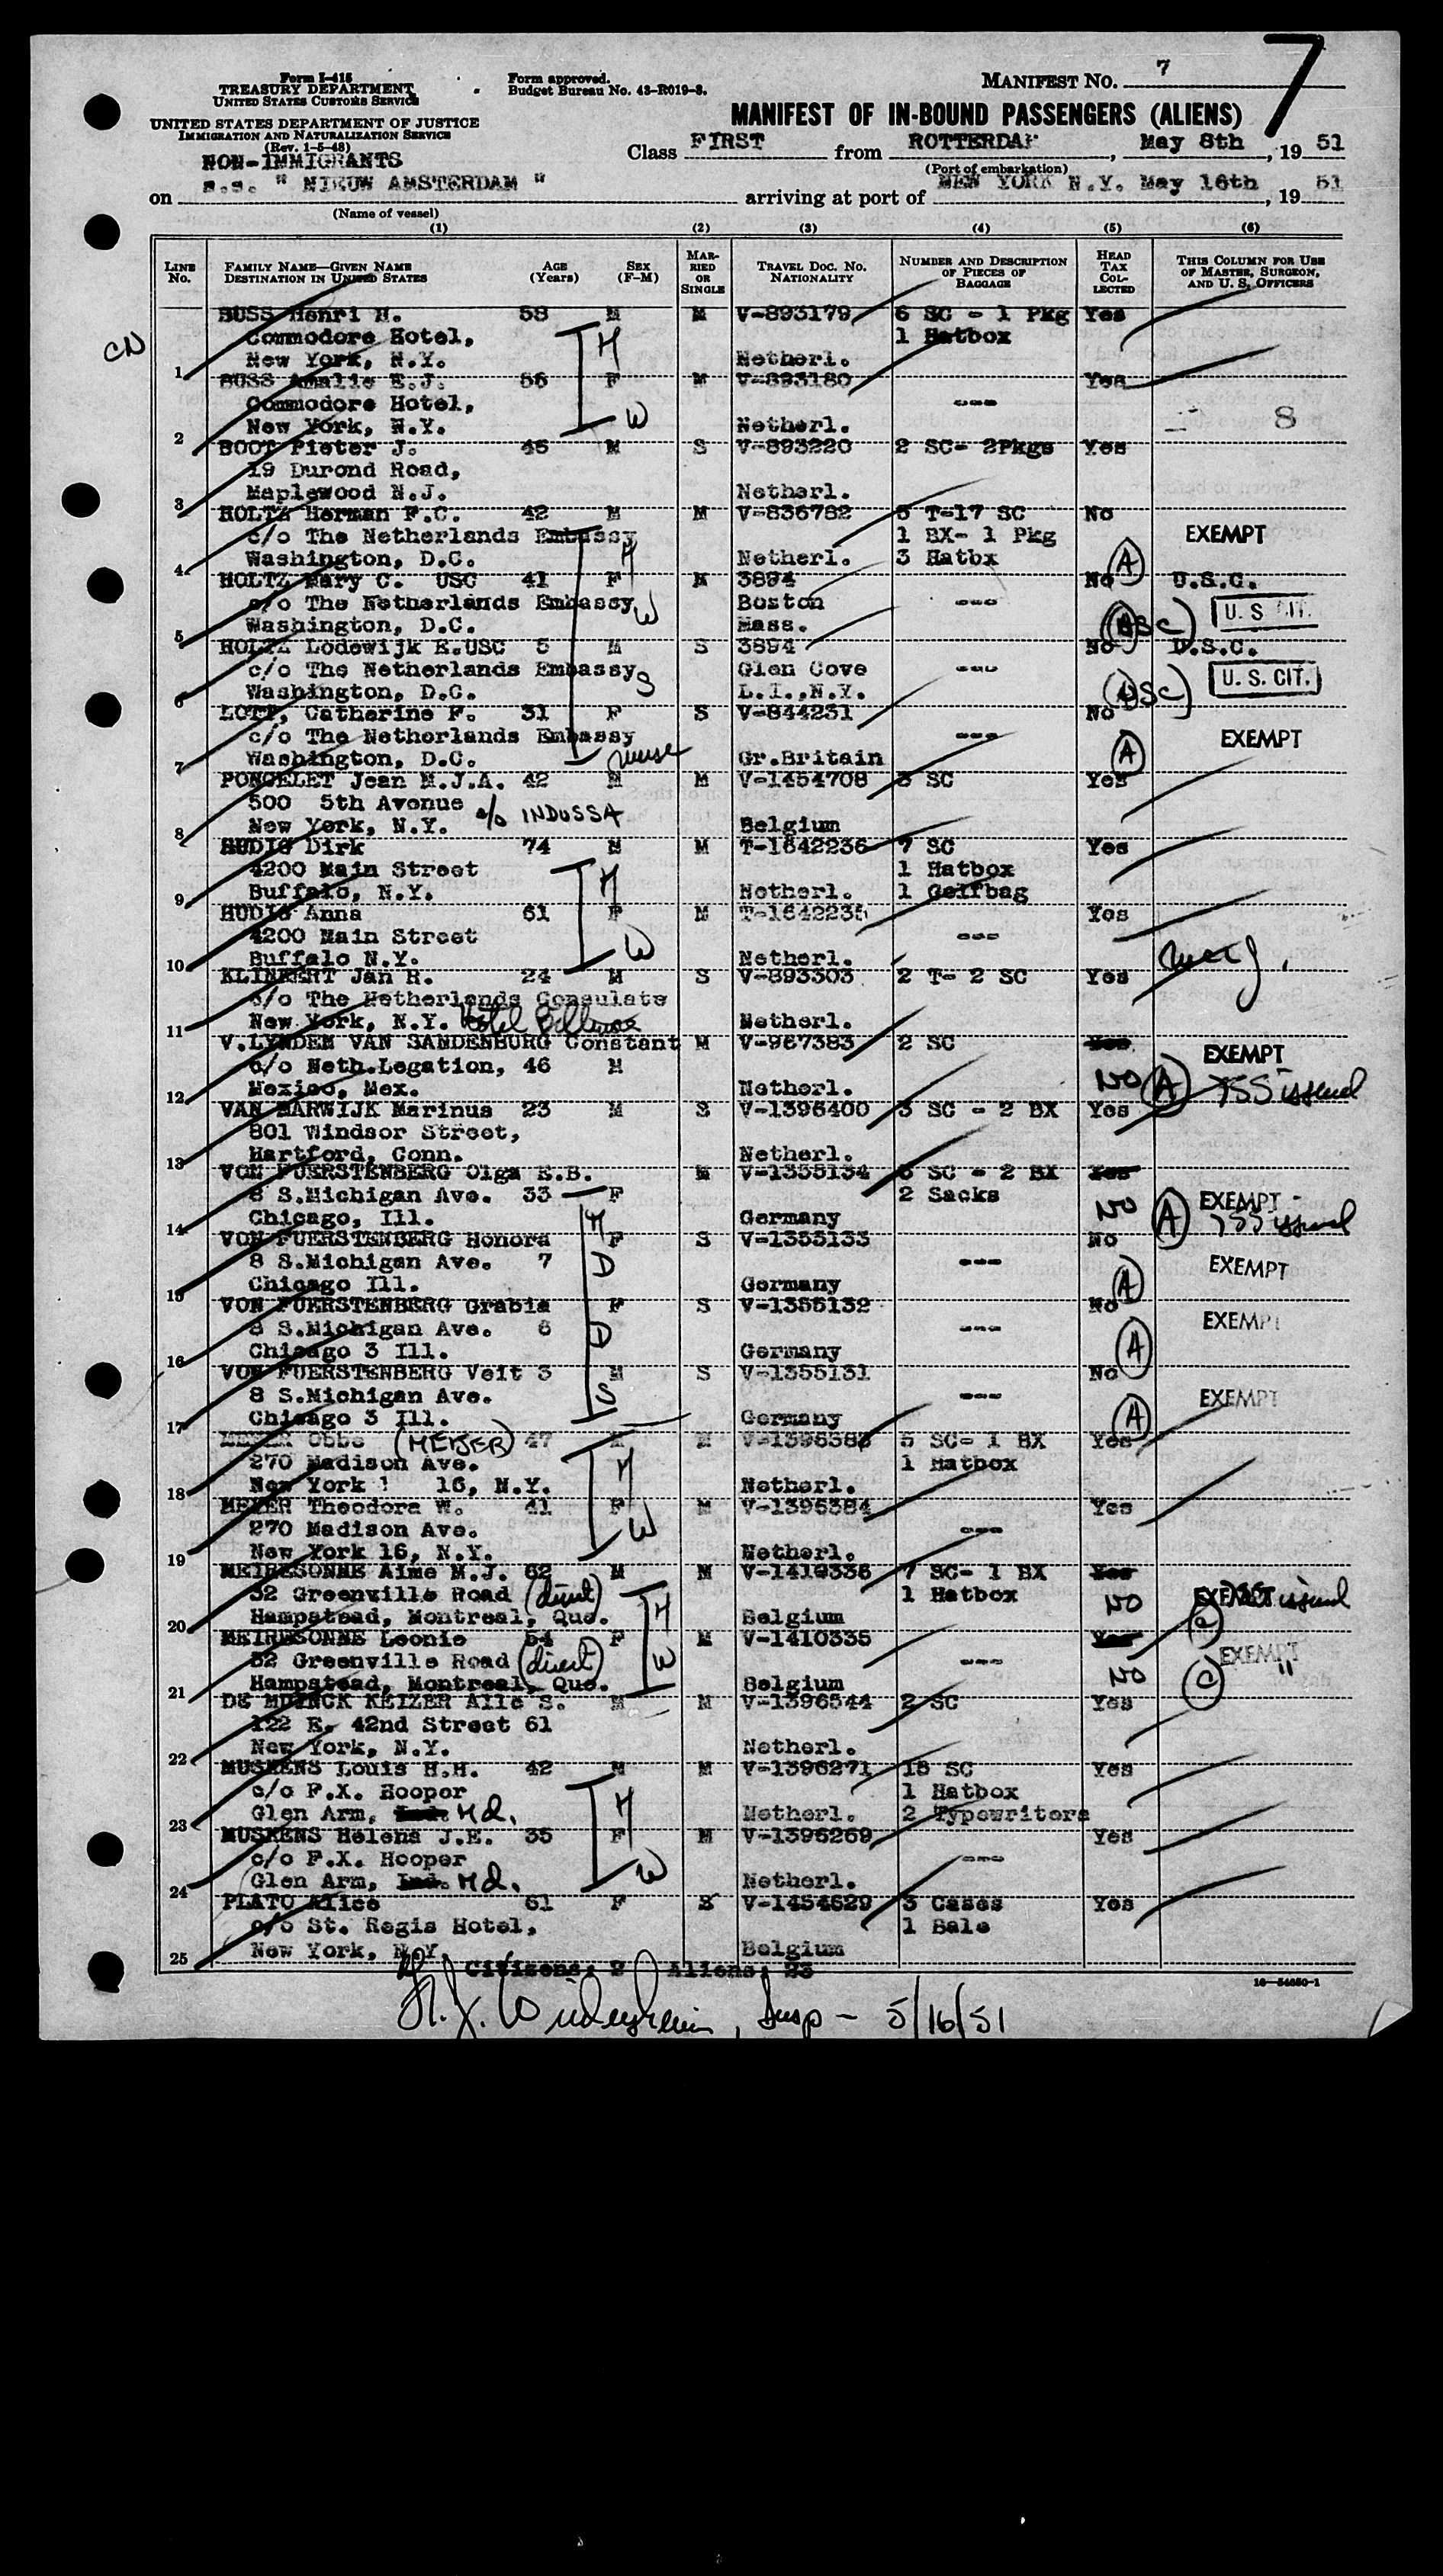 7
Form I-415
TREASURY DEPARTMENT
UNITED STATES CUSTOMS SERVICE
Form approved.
Budget Bureau No. 43-R019-3.
MANIFEST NO. 7
UNITED STATES DEPARTMENT OF JUSTICE
IMMIGRATION AND NATURALIZATION SERVICE
(Rev. 1-5-48)
NON-IMMIGRANTS
MANIFEST OF IN-BOUND PASSENGERS (ALIENS)
Class FIRST from ROTTERDAM, May 8th, 19 51
(Port of embarkation)
on s.s. " NIEUW AMSTERDAM " arriving at port of NEW YORK N.Y. May 16th, 19 51
(Name of vessel)
(1) (2) (3) (4) (5) (6)
LINE No. FAMILY NAME—GIVEN NAME DESTINATION IN UNITED STATES AGE (Years) SEX (F-M) MARRIED OR SINGLE TRAVEL DOC. NO. NATIONALITY NUMBER AND DESCRIPTION OF PIECES OF BAGGAGE HEAD TAX COLLECTED THIS COLUMN FOR USE OF MASTER, SURGEON, AND U. S. OFFICERS
BUSS Henri H. 58 M M V-893179 6 SC - 1 Pkg Yes
CN Commodore Hotel, H 1 Hatbox
1 New York, N.Y. Netherl.
BUSS Amalie E.J. 56 F M V-893180 Yes
Commodore Hotel, W ---
2 New York, N.Y. Netherl. 8
BOOT Pieter J. 46 M S V-893220 2 SC- 2Pkgs Yes
19 Durond Road,
3 Maplewood N.J. Netherl.
HOLTZ Herman F.C. 42 M M V-836782 5 T-17 SC No
c/o The Netherlands Embassy H 1 BX- 1 Pkg EXEMPT
4 Washington, D.C. Netherl. 3 Hatbx (A)
HOLTZ Mary C. USC 41 F M 3894 No U.S.C.
c/o The Netherlands Embassy W Boston --- U. S. CIT.
5 Washington, D.C. Mass. (USC)
HOLTZ Lodewijk E.USC 5 M S 3894 No U.S.C.
c/o The Netherlands Embassy S Glen Cove --- U. S. CIT.
6 Washington, D.C. L.I.,N.Y. (USC)
LOTT, Catherine F. 31 F S V-844231 No
c/o The Netherlands Embassy --- EXEMPT
7 Washington, D.C. nurse Gr.Britain (A)
PONCELET Jean M.J.A. 42 M M V-1454708 3 SC Yes
500 5th Avonue c/o INDUSSA
8 New York, N.Y. Belgium
HUDIG Dirk 74 M M T-1642236 7 SC Yes
4200 Main Street H 1 Hatbox
9 Buffalo, N.Y. Netherl. 1 Golfbag
HUDIG Anna 61 F M T-1642235 Yes
4200 Main Street W ---
10 Buffalo N.Y. Netherl.
KLINKERT Jan R. 24 M S V-893303 2 T- 2 SC Yes
c/o The Netherlands Consulate
11 New York, N.Y. Hotel Netherl.
V.LYNDEN VAN SANDENBURG Constant M V-967383 2 SC Yes EXEMPT
c/o Neth.Legation, 46 M NO (A) issued
12 Mexico, Mex. Netherl.
VAN MARWIJK Marinus 23 M S V-1396400 3 SC - 2 BX Yes
801 Windsor Street,
13 Hartford, Conn. Netherl.
VON FUERSTENBERG Olga E.B. M V-1355134 6 SC - 2 BX Yes
8 S.Michigan Ave. 33 F 2 Sacks NO (A) EXEMPT
14 Chicago, Ill. Germany issued
VON FUERSTENBERG Honora F S V-1355133 No
8 S.Michigan Ave. 7 D --- EXEMPT
15 Chicago Ill. Germany (A)
VON FUERSTENBERG Grabia F S V-1355132 No
8 S.Michigan Ave. 6 D --- EXEMPT
16 Chicago 3 Ill. Germany (A)
VON FUERSTENBERG Veit 3 M S V-1355131 No
8 S.Michigan Ave. S --- EXEMPT
17 Chicago 3 Ill. Germany (A)
MEYER Obbe (MEIJER) 47 M M V-1396383 5 SC- 1 BX Yes
270 Madison Ave. H 1 Hatbox
18 New York 16, N.Y. Netherl.
MEYER Theodora W. 41 F M V-1396384 Yes
270 Madison Ave. W ---
19 New York 16, N.Y. Netherl.
MEIRESONNE Aime M.J. 62 M M V-1410336 7 SC- 1 BX Yes
52 Greenville Road (direct) H 1 Hatbox NO EXEMPT issued
20 Hampstead, Montreal, Que. Belgium (C)
MEIRESONNE Leonie 54 F M V-1410335 Yes
52 Greenville Road (direct) W --- NO EXEMPT "
21 Hampstead, Montreal, Que. Belgium (C)
DE MUINCK KEIZER Alle S. M M V-1396544 2 SC Yes
122 E. 42nd Street 61
22 New York, N.Y. Netherl.
MUSKENS Louis H.H. 42 M M V-1396271 18 SC Yes
c/o F.X. Hooper H 1 Hatbox
23 Glen Arm, Md. Netherl. 2 Typewriters
MUSKENS Helena J.E. 35 F M V-1396269 Yes
c/o F.X. Hooper W ---
24 Glen Arm, Md. Netherl.
PLATO Alice 61 F S V-1454629 3 Cases Yes
c/o St. Regis Hotel, 1 Bale
25 New York, N.Y. Belgium
Citizens: 2 Aliens: 23
16—54050-1
Insp - 5/16/51